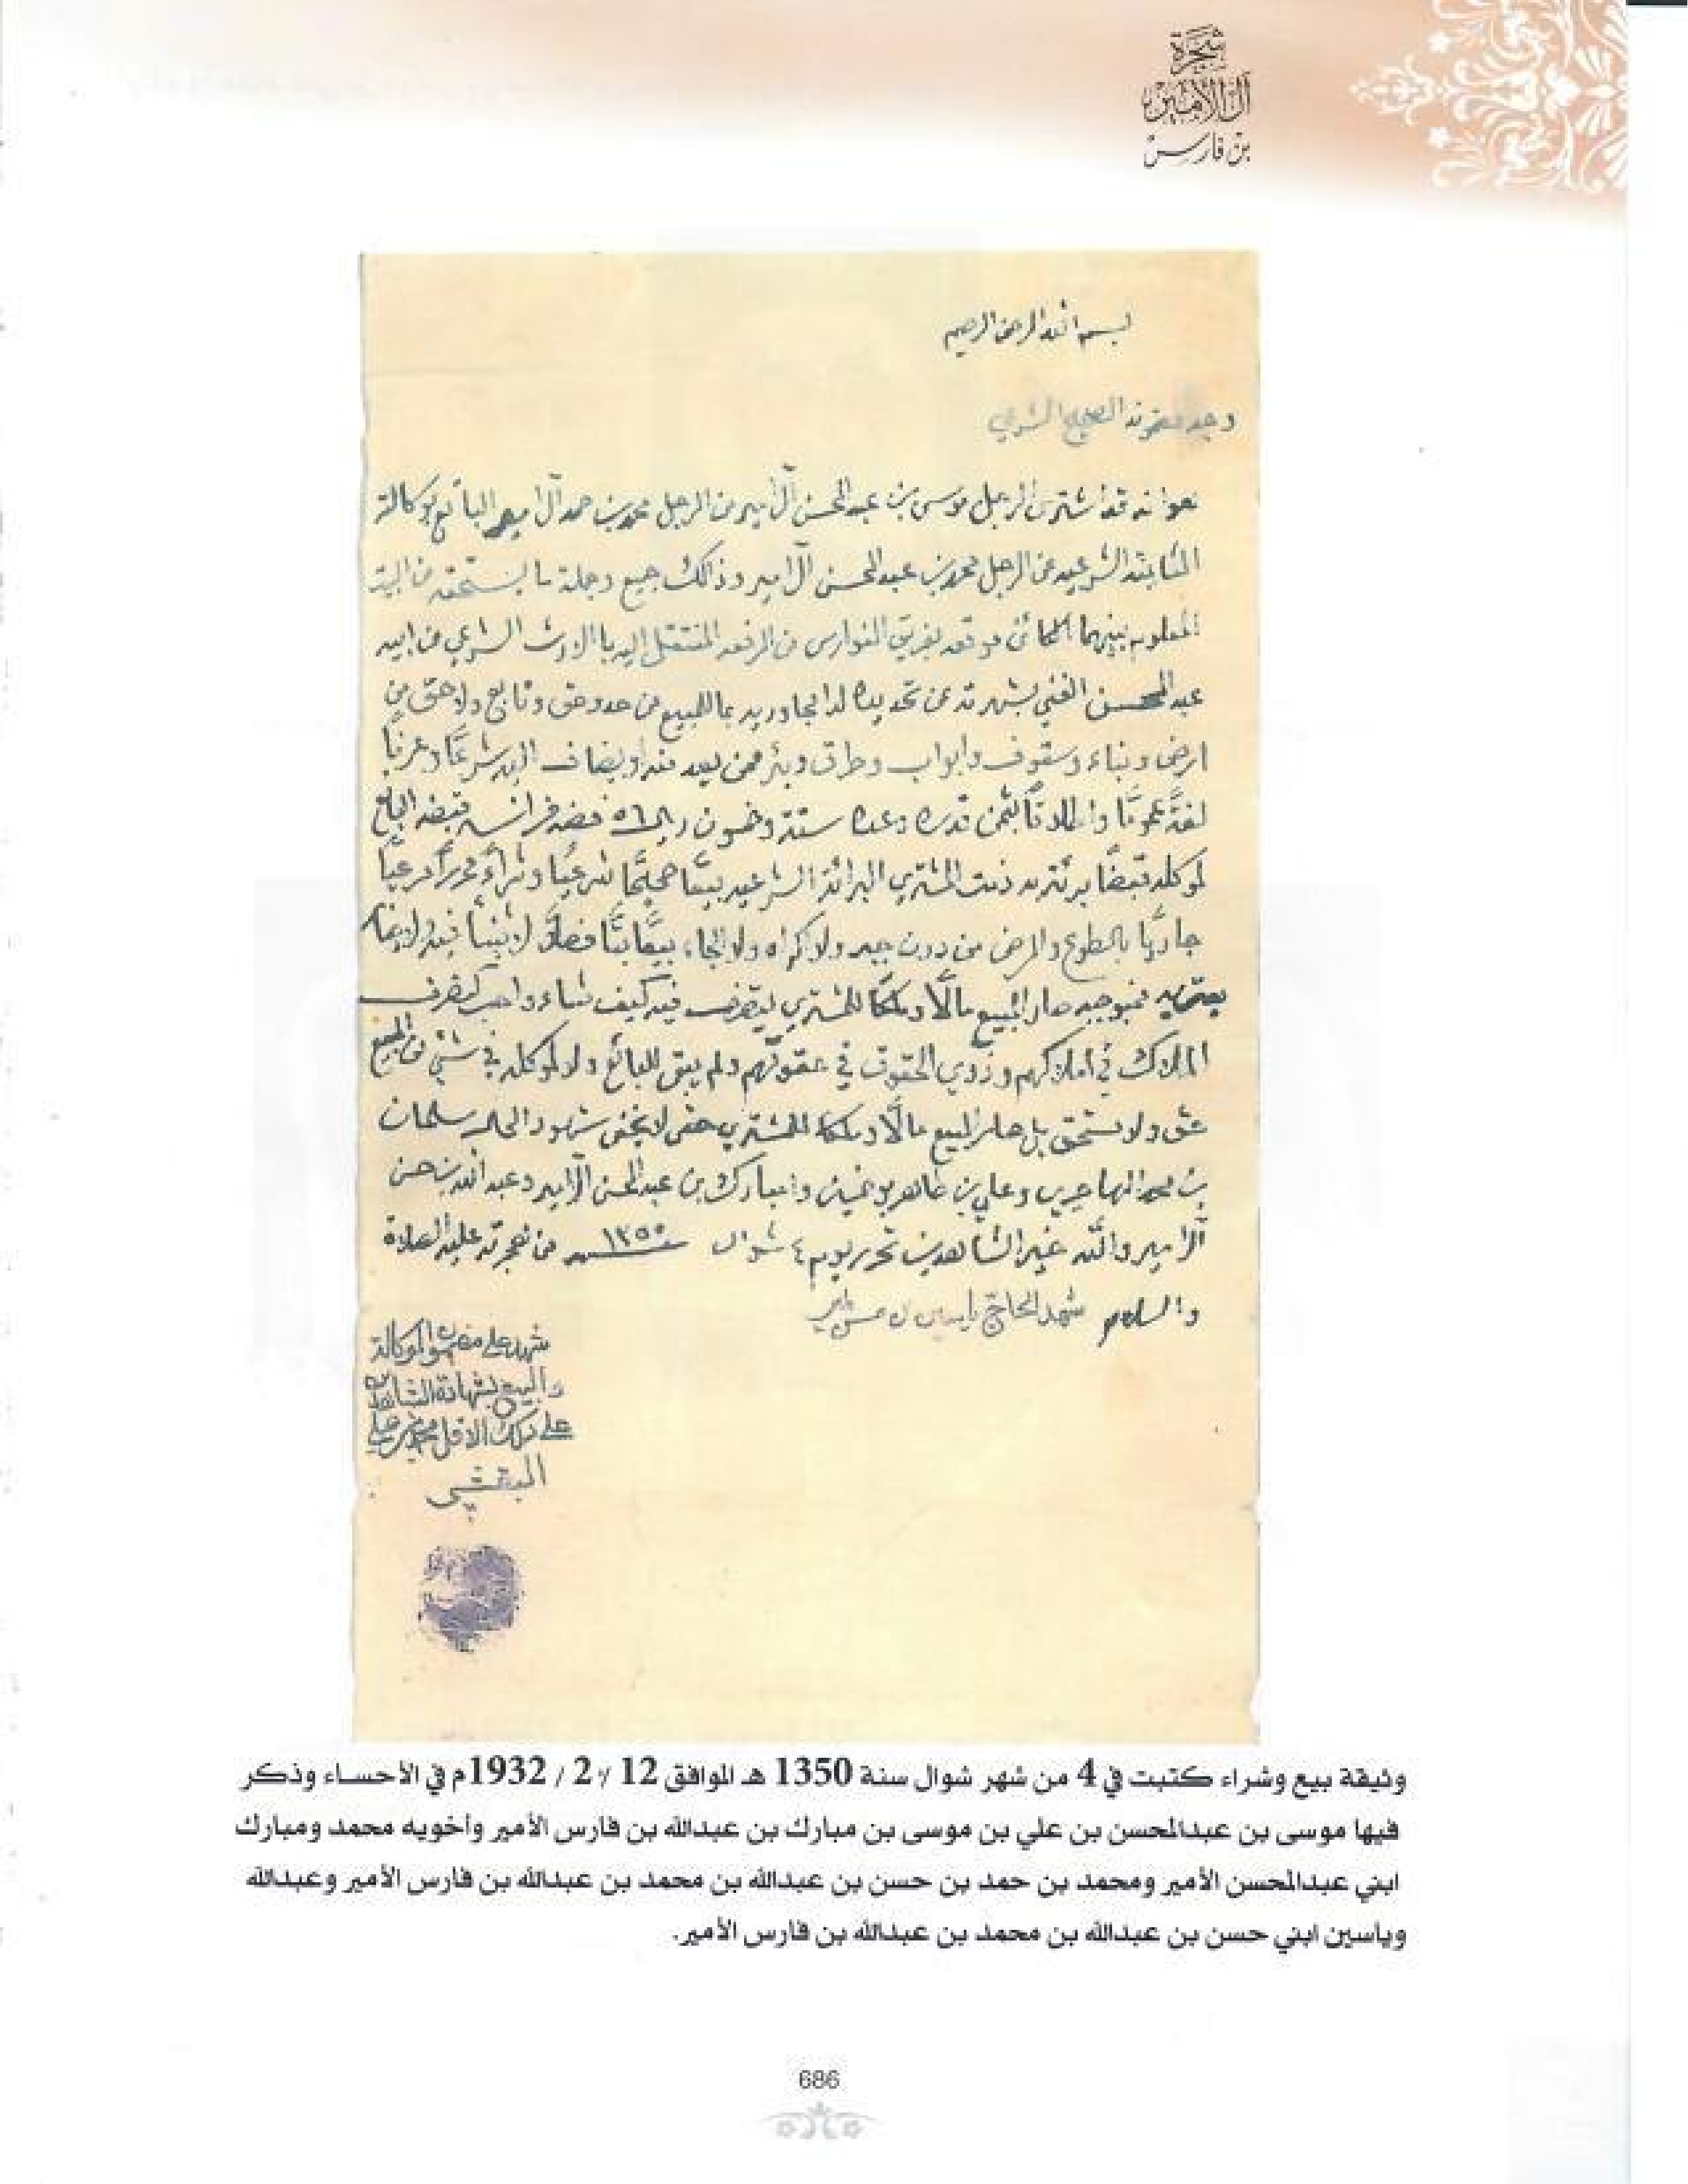 شجرة
آل الأمير
بن فارس
بسم الله الرحمن الرحيم
الصحيح الشرعي
هو انه قد اشترى الرجل موسى بن عبد المحسن آل امير من الرجل محمد بن حمد آل امير البائع بوكالته
الثابتة الشرعيه عن الرجل محمد بن عبد المحسن آل امير وذالك جميع وجملة ما يستحقه من البيت
المعلوم بينهما الكائن موقعه بفريق الفوارس من الرفعه المنتقل اليه باالارث الشرعي من ابيه
عبد المحسن الغني بشهرته عن تحديده لدا مجاوريه بما للمبيع من حد وحق وتابع ولاحق من
ارض وبناء وسقوف وابواب وطرق وبئر ممن يعد منه او يضاف اليه شرعًا وعرفًا
لغةً عمومًا واطلاقًا بثمن قدره وعده ستة وخمسون ريال ٥٦ فضه فرانسه قبضه البائع
لموكله قبضًا برئة به ذمت المشتري البرائة الشرعيه بيعًا صحيحًا شرعيًا وشراءً محررًا مرعيًا
جاريًا بالطوع والرضى من دون جبر ولا اكراه ولا الجاء بيعًا بتًا فصلًا لا ثنيا فيه ولا
فبموجبه صار المبيع مالًا وملكًا للمشتري ليتصرف فيه كيف شاء واحب كتصرف
الملاك في أملاكهم وذوي الحقوق في حقوقهم ولم يبق للبائع ولا لموكله في شئ من المبيع
حق ولا مستحق بل صار المبيع مالًا وملكا للمشتري حتى لا يخفى شهود الحال سلمان
بن محمد المهاجري وعلي بن طاهر بوخمسين وامبارك بن عبد المحسن آل امير وعبد الله بن حسن
آل امير والله خير الشاهدين تحرير يوم ٤ شوال سنة ١٣٥٠ من هجرته عليه الصلاة
والسلام شهد الحاج ياسين
شهد على مضمون الوكالة
والبيع بشهادة الشاهدين
على ذلك الاقل محمد بن علي
البقشي
وثيقة بيع وشراء كتبت في 4 من شهر شوال سنة 1350 هـ الموافق 12 / 2 / 1932م في الأحساء وذكر
فيها موسى بن عبدالمحسن بن علي بن موسى بن مبارك بن عبدالله بن فارس الأمير وأخويه محمد ومبارك
ابني عبدالمحسن الأمير ومحمد بن حمد بن حسن بن عبدالله بن محمد بن عبدالله بن فارس الأمير وعبدالله
وياسين ابني حسن بن عبدالله بن محمد بن عبدالله بن فارس الأمير.
686